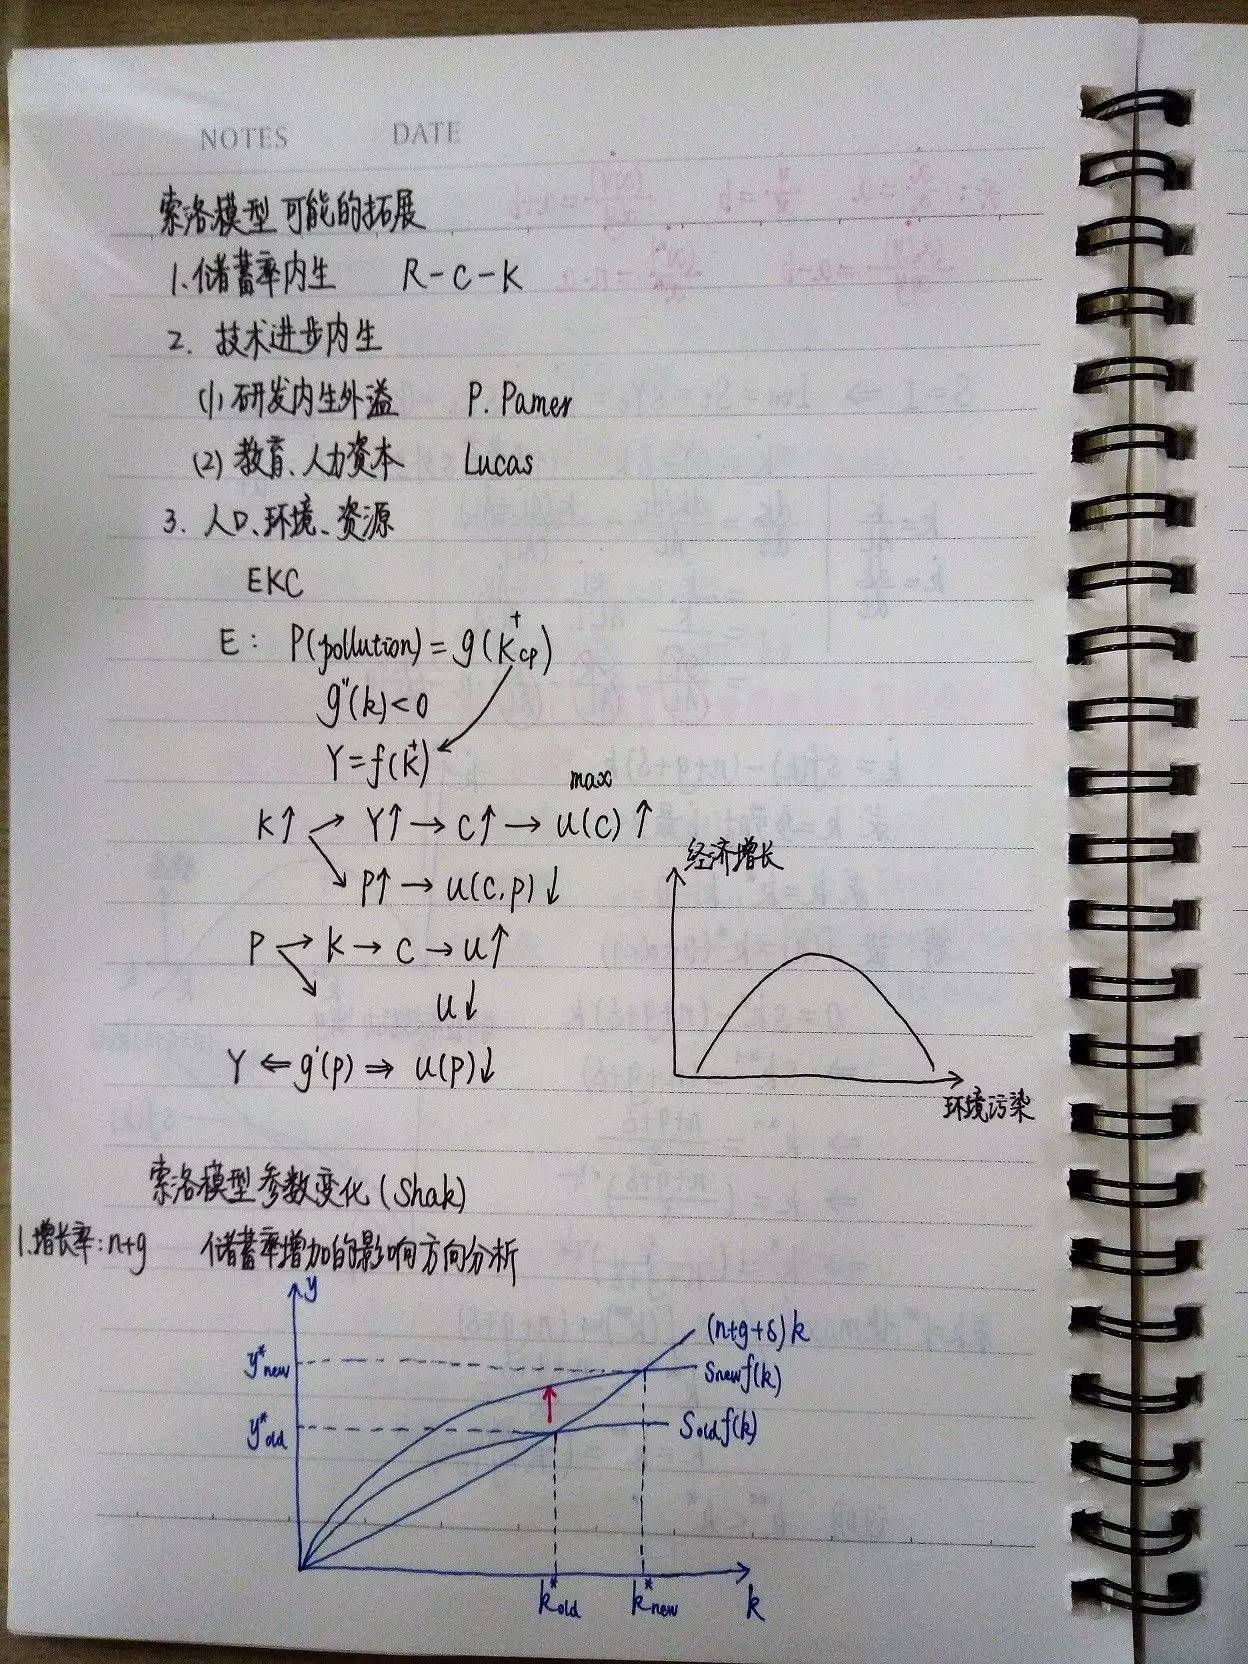 NOTES DATE
索洛模型可能的拓展
1.储蓄率内生 R-C-K
2. 技术进步内生
(1)研发内生外溢 P. Pamer
(2)教育、人力资本 Lucas
3. 人口、环境、资源
EKC
E: P(pollution)=g(K⁺cp)
g''(k)<0
Y=f(k⁺)
max
K↑ → Y↑ → C↑ → U(C)↑
↘ P↑ → U(C,P)↓
P → K → C → U↑
↘ U↓
Y ⇐ g'(p) ⇒ U(P)↓
经济增长
环境污染
索洛模型参数变化(Shak)
1.增长率:n+g 储蓄率增加的影响方向分析
y
(n+g+δ)k
y*new
Snewf(k)
y*old
Soldf(k)
k*old k*new k